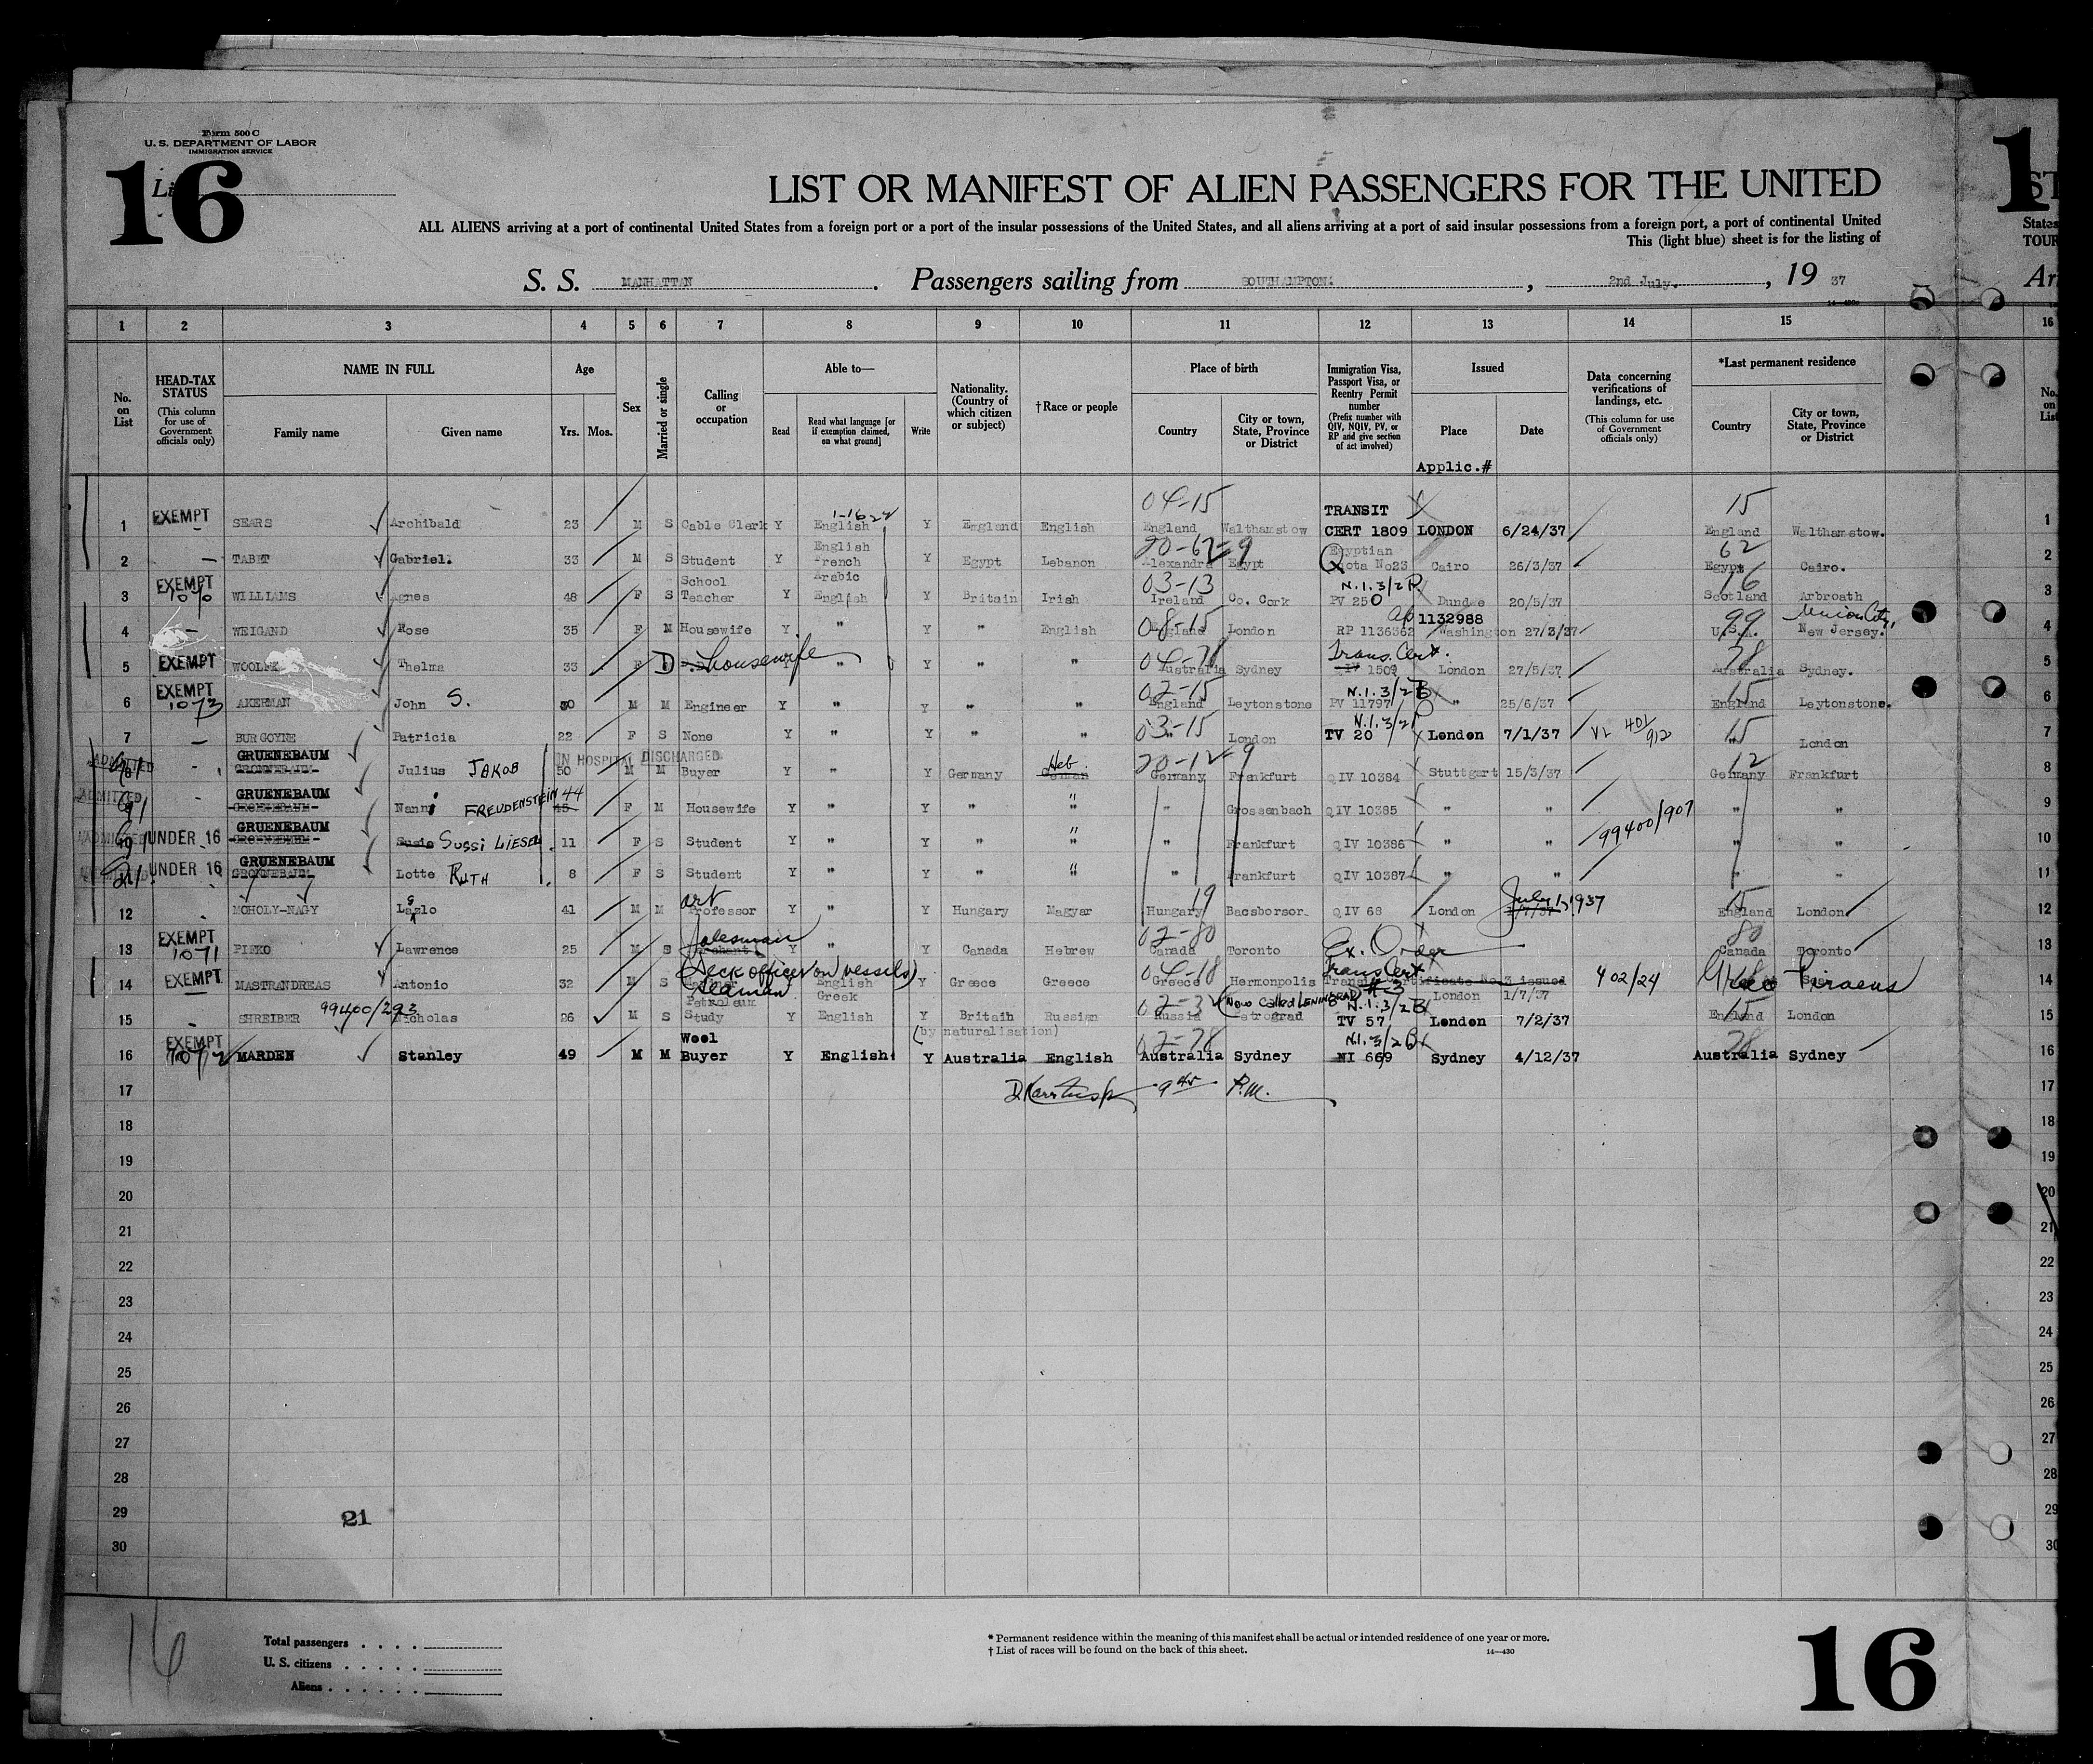 Form 500 C
U. S. DEPARTMENT OF LABOR
IMMIGRATION SERVICE
16
LIST OR MANIFEST OF ALIEN PASSENGERS FOR THE UNITED
ALL ALIENS arriving at a port of continental United States from a foreign port or a port of the insular possessions of the United States, and all aliens arriving at a port of said insular possessions from a foreign port, a port of continental United
This (light blue) sheet is for the listing of
S. S. MANHATTAN. Passengers sailing from SOUTHAMPTON, 2nd July., 19 37
1 2 3 4 5 6 7 8 9 10 11 12 13 14 15 16
No. on List
HEAD-TAX STATUS (This column for use of Government officials only)
NAME IN FULL
Family name Given name
Age
Yrs. Mos.
Sex
Married or single
Calling or occupation
Able to—
Read Read what language [or if exemption claimed, on what ground] Write
Nationality. (Country of which citizen or subject)
†Race or people
Place of birth
Country City or town, State, Province or District
Immigration Visa, Passport Visa, or Reentry Permit number (Prefix number with QIV, NQIV, PV, or RP and give section of act involved)
Issued
Place Date
Applic.#
Data concerning verifications of landings, etc. (This column for use of Government officials only)
*Last permanent residence
Country City or town, State, Province or District
1 EXEMPT SEARS Archibald 23 M S Cable Clerk Y English Y England English 04-15 England Walthamstow TRANSIT CERT 1809 LONDON 6/24/37 15 England Walthamstow.
2 TABET Gabriel. 33 M S Student Y English French Arabic Y Egypt Lebanon Alexandra Egypt Egyptian Quota No23 Cairo 26/3/37 62 Egypt Cairo.
3 EXEMPT WILLIAMS Agnes 48 F S School Teacher Y English Y Britain Irish 03-13 Ireland Co. Cork N.I.3/2 PV 250 Dundee 20/5/37 16 Scotland Arbroath
4 WEIGAND Rose 35 F M Housewife Y " Y " English 08-15 England London 1132988 RP 1136362 Washington 27/3/37 99 U.S.A. Union City, New Jersey.
5 EXEMPT Thelma 33 F D housewife " Y " " Australia Sydney Trans. Cert. 1509 London 27/5/37 78 Australia Sydney.
6 EXEMPT 1073 AKERMAN John S. 30 M M Engineer Y " Y " " 02-15 England Leytonstone N.I.3/2B PV 11797 " 25/6/37 15 England Leytonstone.
7 BURGOYNE Patricia 22 F S None Y " Y " " 03-15 " London N.I.3/2 TV 20 London 7/1/37 VL 401/912 15 " London
8 ADMITTED GRUENEBAUM Julius JAKOB IN HOSPITAL DISCHARGED 50 M M Buyer Y " Y Germany Heb. German 20-12-9 Germany Frankfurt QIV 10384 Stuttgart 15/3/37 12 Germany Frankfurt
9 ADMITTED GRUENEBAUM Nanni FREUDENSTEIN 44 45 F M Housewife Y " Y " " " Grossenbach QIV 10385 " " " "
10 ADMITTED UNDER 16 GRUENEBAUM Susie Sussi LIESEL 11 F S Student Y " Y " " " Frankfurt QIV 10386 " " 99400/907 " "
11 UNDER 16 GRUENEBAUM Lotte RUTH 8 F S Student Y " Y " " " Frankfurt QIV 10387 " " " "
12 MOHOLY-NAGY Lazlo 41 M M art Professor Y " Y Hungary Magyar 19 Hungary Bacsborsor. QIV 68 London July 1, 1937 15 England London
13 EXEMPT 1071 Lawrence 25 M S Salesman Y " Y Canada Hebrew 02-80 Canada Toronto Ex. Order 80 Canada Toronto
14 EXEMPT MASTRANDREAS Antonio 32 M S (Deck officer on vessels) Seaman English Greek Y Greece Greece Greece Hermonpolis Trans Cert #3 Transit Certificate No.3 issued London 1/7/37 402/24 Piraeus
15 SHREIBER 99400/293 Nicholas 26 M S Petroleum Study Y English Y Britain (by naturalisation) Russian Russia Petrograd (Now Called LENINGRAD) N.I.3/2B TV 57 London 7/2/37 15 England London
16 EXEMPT 1072 MARDEN Stanley 49 M M Wool Buyer Y English Y Australia English 02-78 Australia Sydney N.I.3/2B NI 669 Sydney 4/12/37 78 Australia Sydney
17 9 45 P.M.
18
19
20
21
22
23
24
25
26
27
28
29
30
21
16
Total passengers
U. S. citizens
Aliens
* Permanent residence within the meaning of this manifest shall be actual or intended residence of one year or more.
† List of races will be found on the back of this sheet.
14—430
16